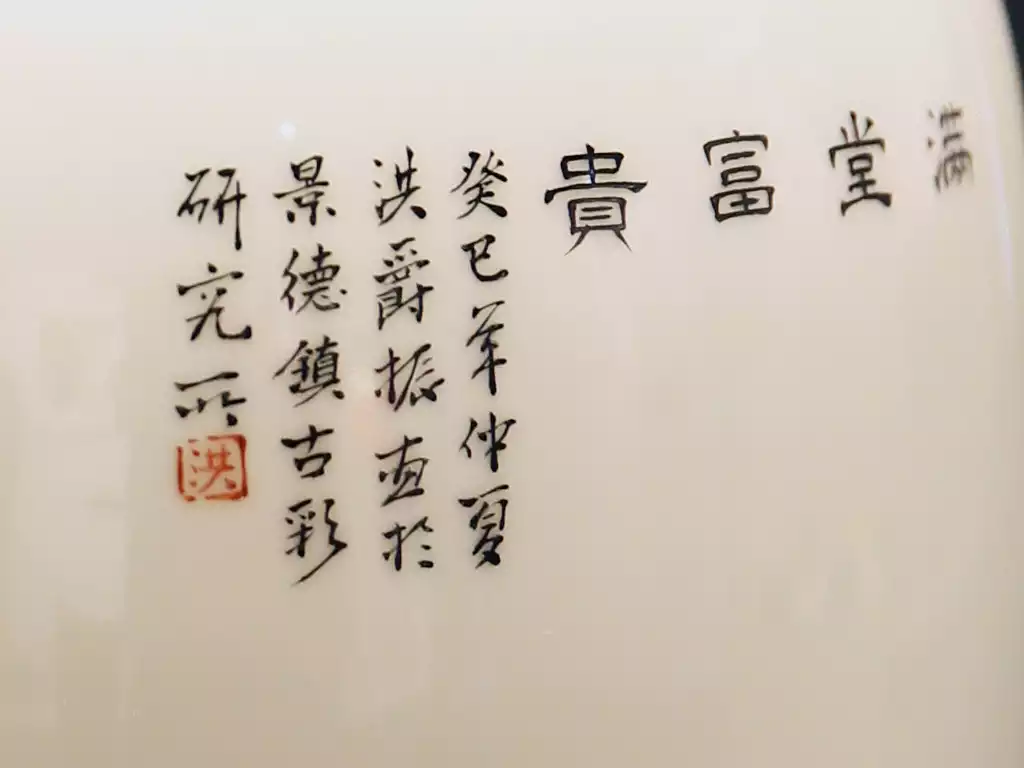 滿堂富貴
癸巳年仲夏
洪爵振畫於
景德鎮古彩
研究所
洪